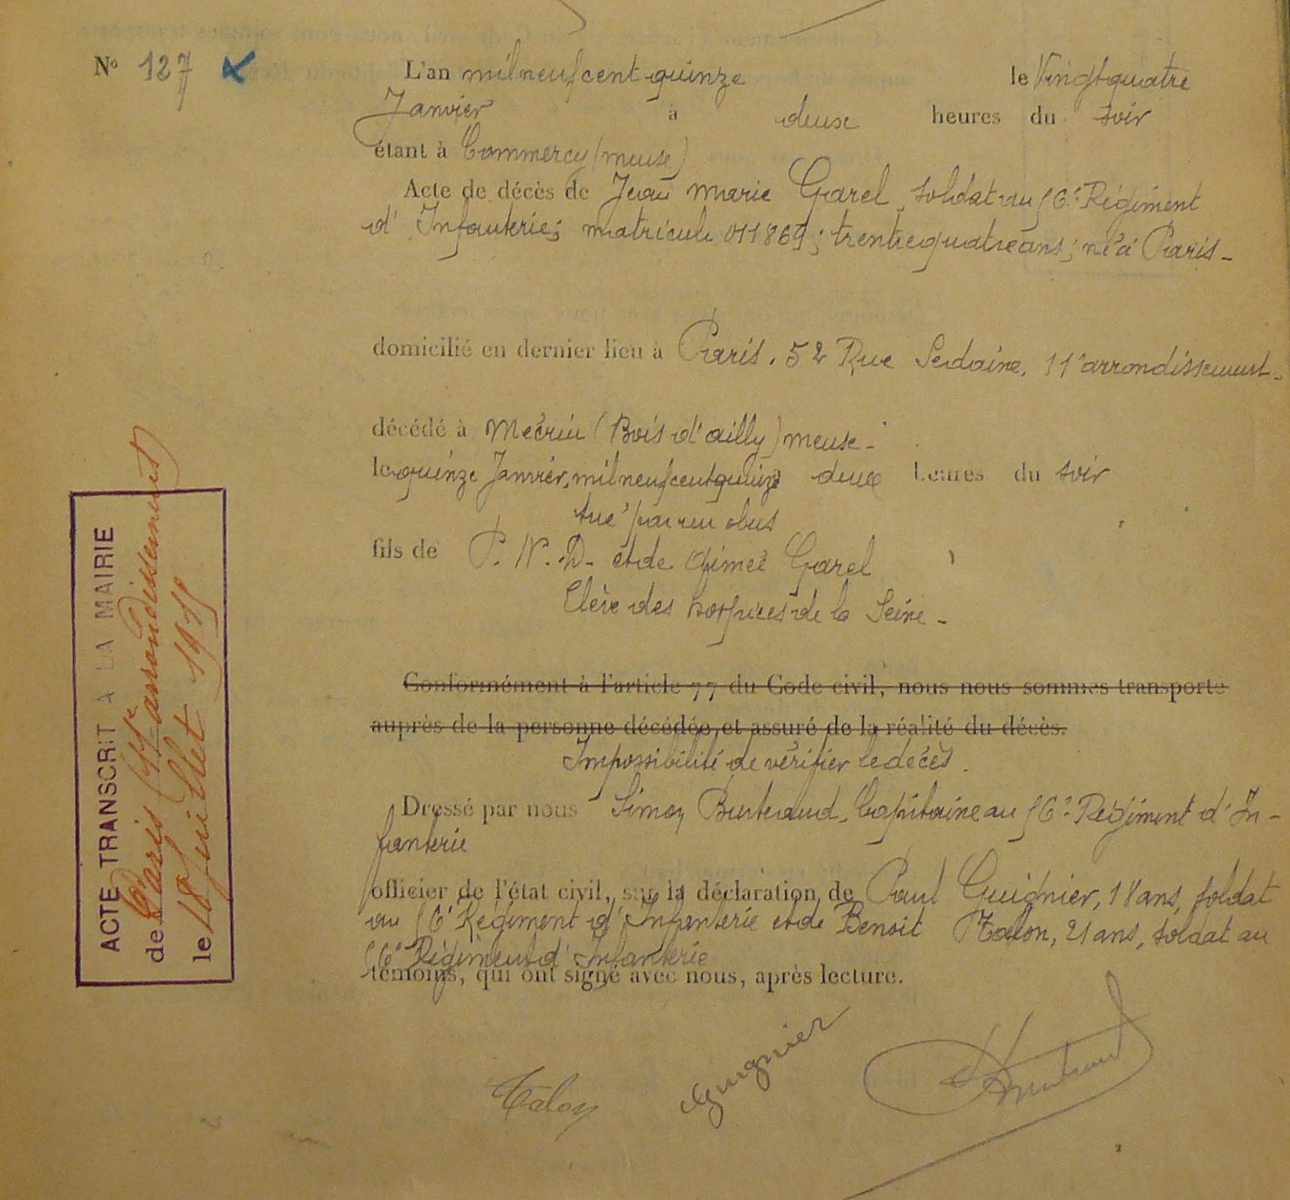 N° 127
L'an mil neuf cent quinze le Vingt quatre
Janvier à deux heures du soir
étant à Commercy (meuse)
Acte de décès de Jean Marie Garel, soldat au 56e Régiment
d'Infanterie; matricule 011869; trente quatre ans; né à Paris -
domicilié en dernier lieu à Paris. 52 Rue Sedaine. 11e arrondissement -
décédé à Mécrin (Bois d'ailly) meuse -
le quinze Janvier, mil neuf cent quinze à deux heures du soir
tué par un obus
fils de P. N. D. et de Aimée Garel
Elève des hospices de la Seine -
Conformément à l'article 77 du Code civil, nous nous sommes transporté
auprès de la personne décédée, et assuré de la réalité du décès.
Impossibilité de vérifier le décès.
Dressé par nous Simon, Capitaine au 56e Régiment d'In-
fanterie
officier de l'état civil, sur la déclaration de Paul Guignier, 18 ans, soldat
au 56e Régiment d'Infanterie et de Benoit Talon, 21 ans, soldat au
56e Régiment d'Infanterie
témoins, qui ont signé avec nous, après lecture.
Talon Guignier
ACTE TRANSCRIT À LA MAIRIE
de Paris (11e arrondissement)
le 18 Juillet 1915